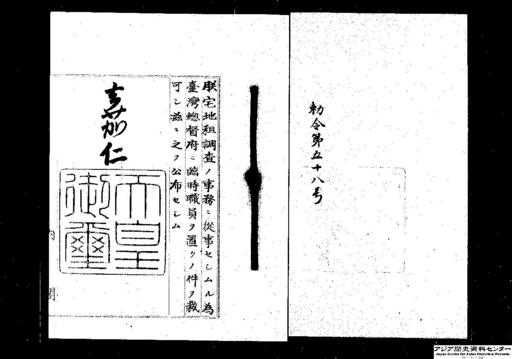 勅令第五十八号
朕宅地租調査ノ事務ニ從事セシムル為
臺灣總督府ニ臨時職員ヲ置クノ件ヲ裁
可シ茲ニ之ヲ公布セシム
嘉仁
天皇
御璽
内閣
アジア歴史資料センター
Japan Center for Asian Historical Records